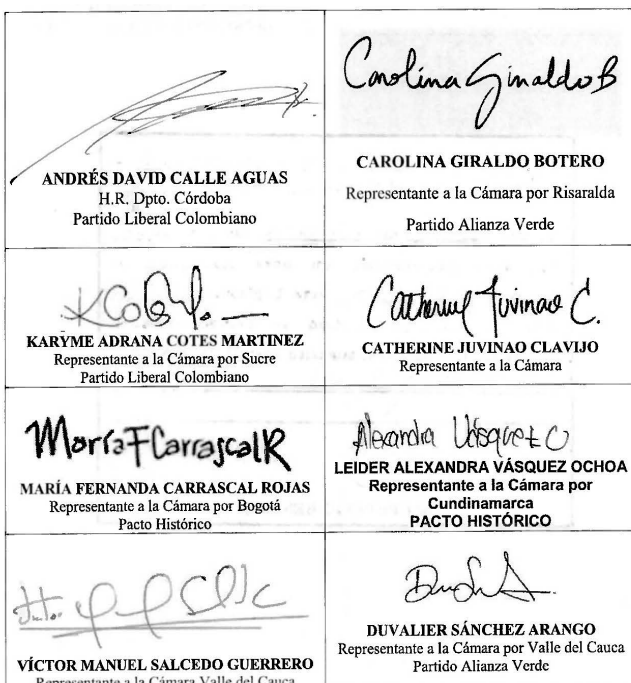 ANDRÉS DAVID CALLE AGUAS
H.R. Dpto. Córdoba
Partido Liberal Colombiano
Carolina Giraldo B
CAROLINA GIRALDO BOTERO
Representante a la Cámara por Risaralda
Partido Alianza Verde
KARYME ADRANA COTES MARTINEZ
Representante a la Cámara por Sucre
Partido Liberal Colombiano
Catherine Juvinao C.
CATHERINE JUVINAO CLAVIJO
Representante a la Cámara
María F Carrascal R
MARÍA FERNANDA CARRASCAL ROJAS
Representante a la Cámara por Bogotá
Pacto Histórico
Alexandra Vásquez O
LEIDER ALEXANDRA VÁSQUEZ OCHOA
Representante a la Cámara por
Cundinamarca
PACTO HISTÓRICO
VÍCTOR MANUEL SALCEDO GUERRERO
Representante a la Cámara Valle del Cauca
DUVALIER SÁNCHEZ ARANGO
Representante a la Cámara por Valle del Cauca
Partido Alianza Verde